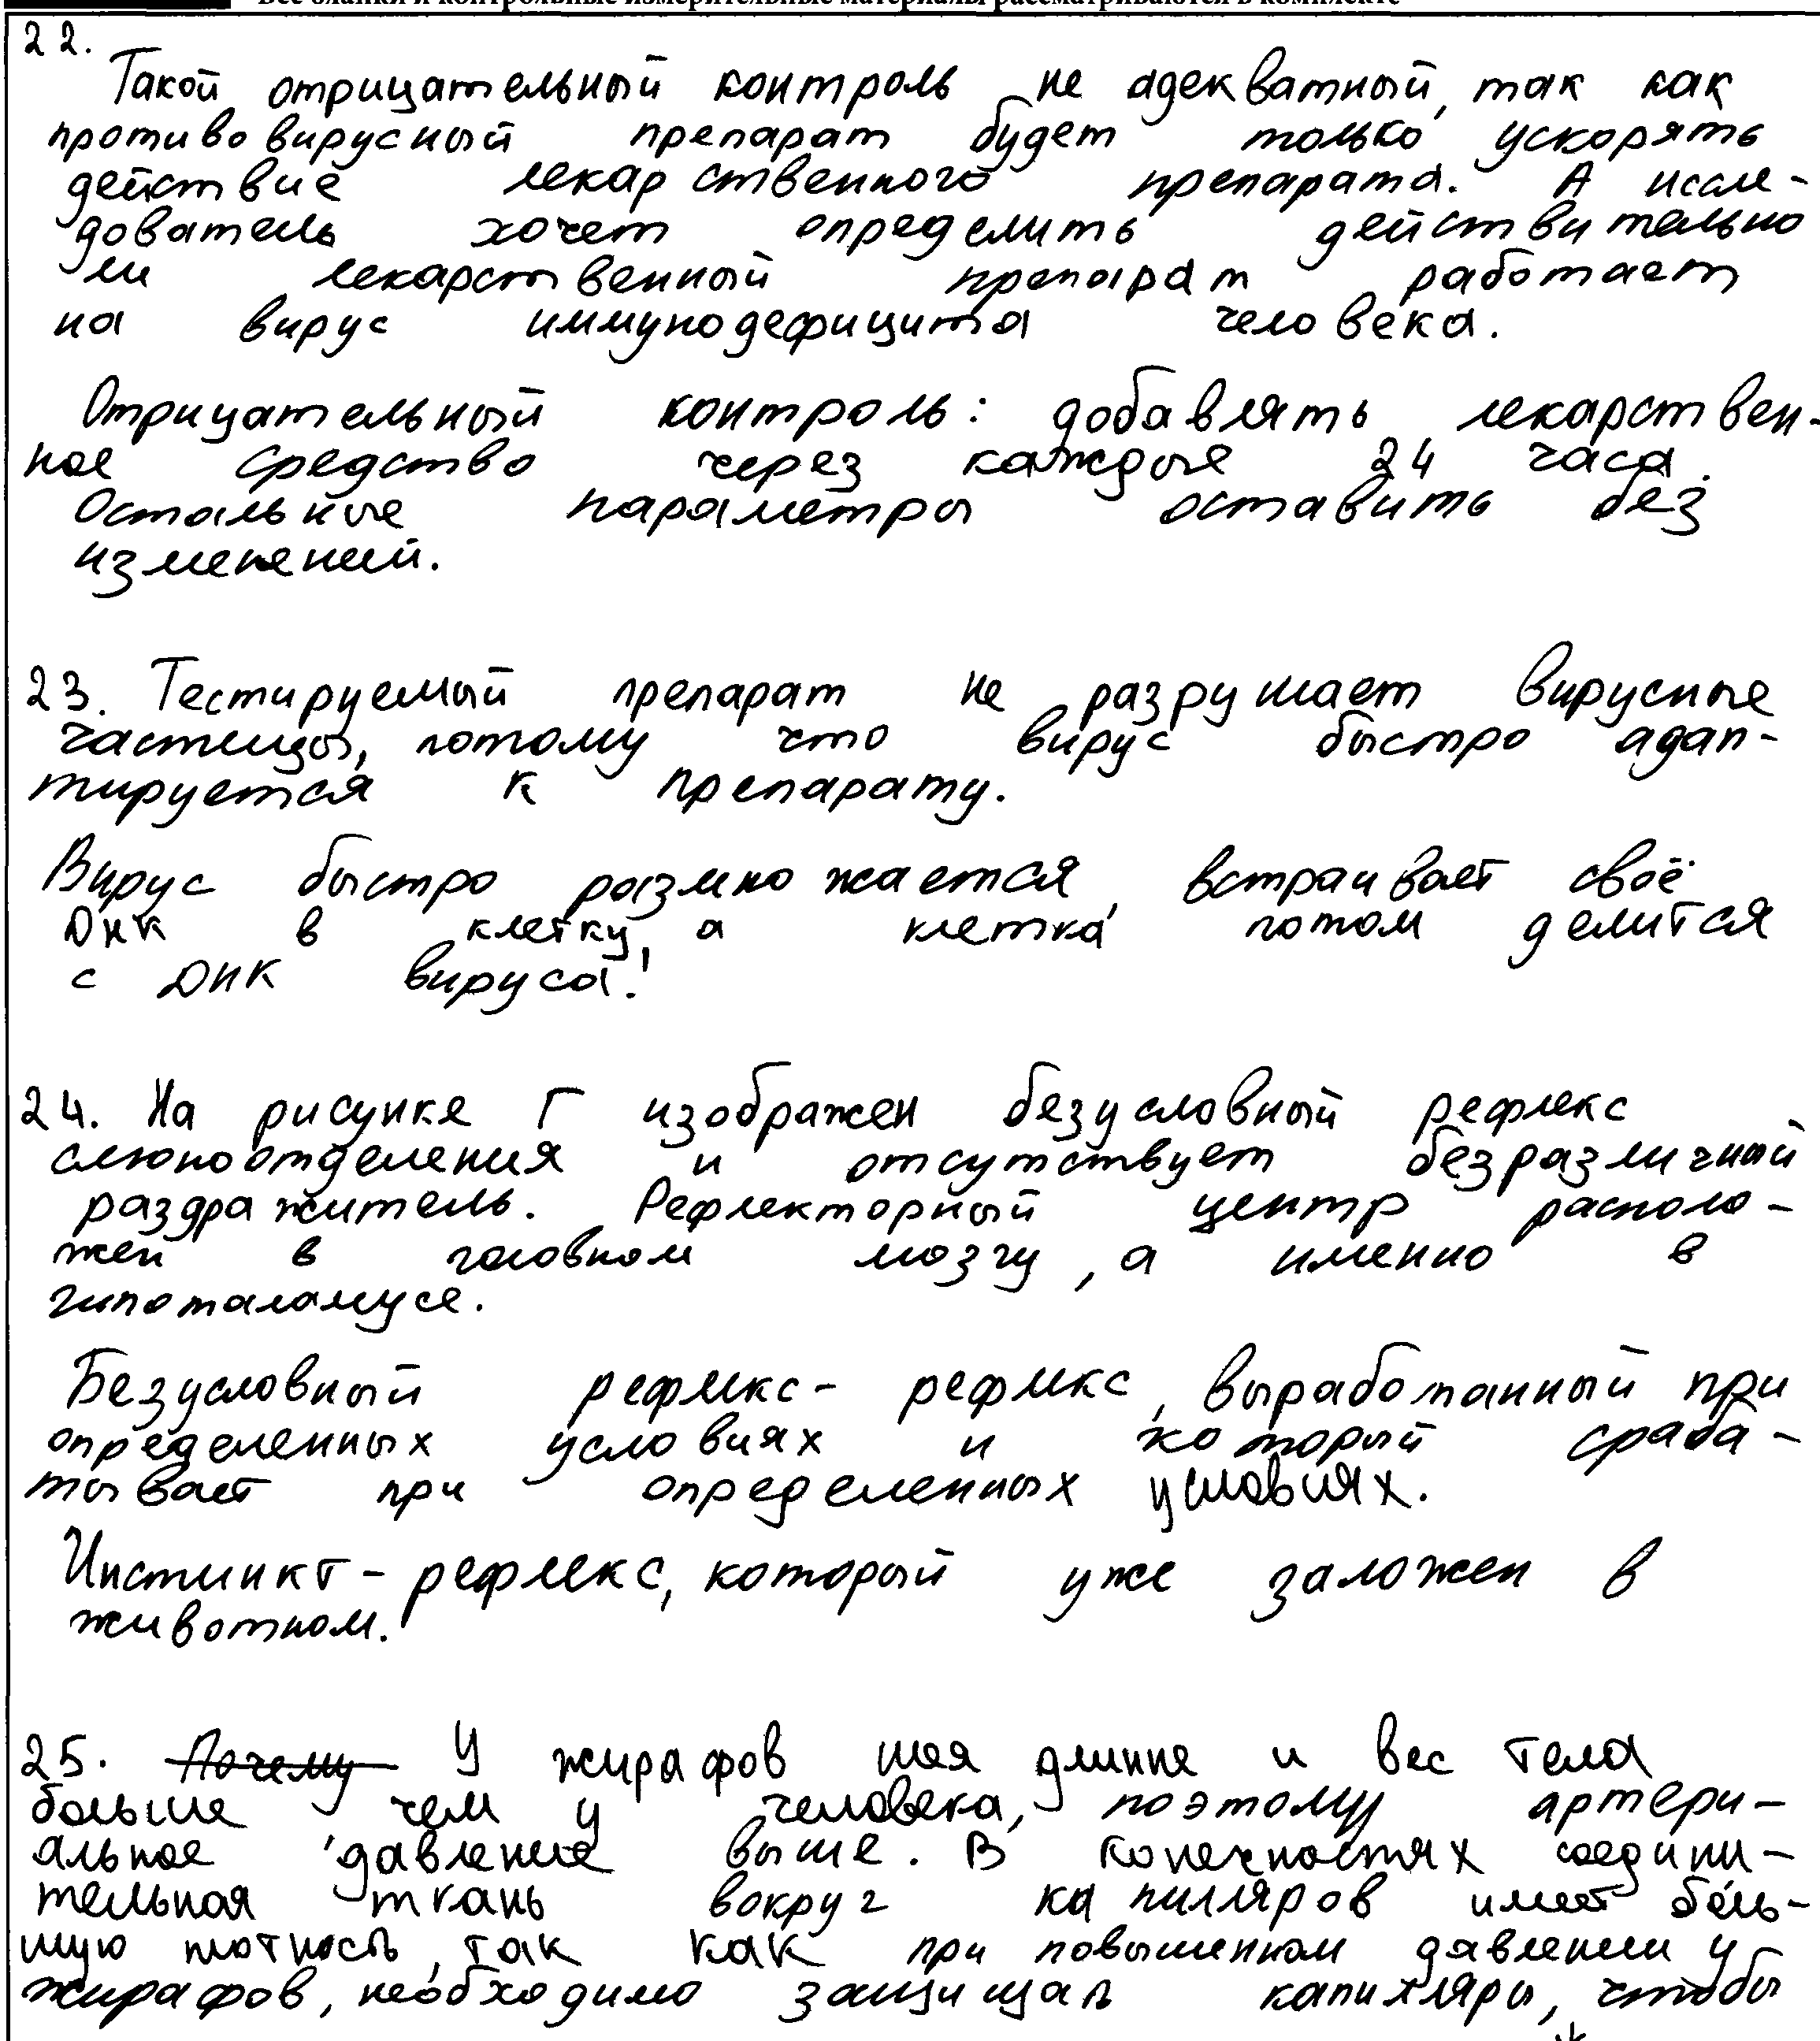 Все бланки и контрольные измерительные материалы рассматриваются в комплекте
22.
Такой отрицательный контроль не адекватный, так как
противовирусный препарат будет только ускорять
действие лекарственного препарата. А иссле-
дователь хочет определить действительно
ли лекарственный препарат работает
на вирус иммунодефицита человека.
Отрицательный контроль: добавлять лекарствен-
ное средство через каждые 24 часа.
Остальные параметры оставить без
изменений.
23. Тестируемый препарат не разрушает вирусные
частицы, потому что вирус быстро адап-
тируется к препарату.
Вирус быстро размножается, встраивает своё
ДНК в клетку, а клетка потом делится
с ДНК вируса!
24. На рисунке Г изображен безусловный рефлекс
слюноотделения и отсутствует безразличный
раздражитель. Рефлекторный центр располо-
жен в головном мозгу, а именно в
гипоталамусе.
Безусловный рефлекс - рефлекс, выработанный при
определенных условиях и который сраба-
тывает при определенных условиях.
Инстинкт - рефлекс, который уже заложен в
животном.
25. Почему У жирафов шея длинне и вес тела
больше чем у человека, поэтому артери-
альное давление выше. В конечностях соедини-
тельная ткань вокруг капилляров имеет боль-
шую плотность, так как при повышенном давлении у
жирафов, необходимо защищал капилляры, чтобы